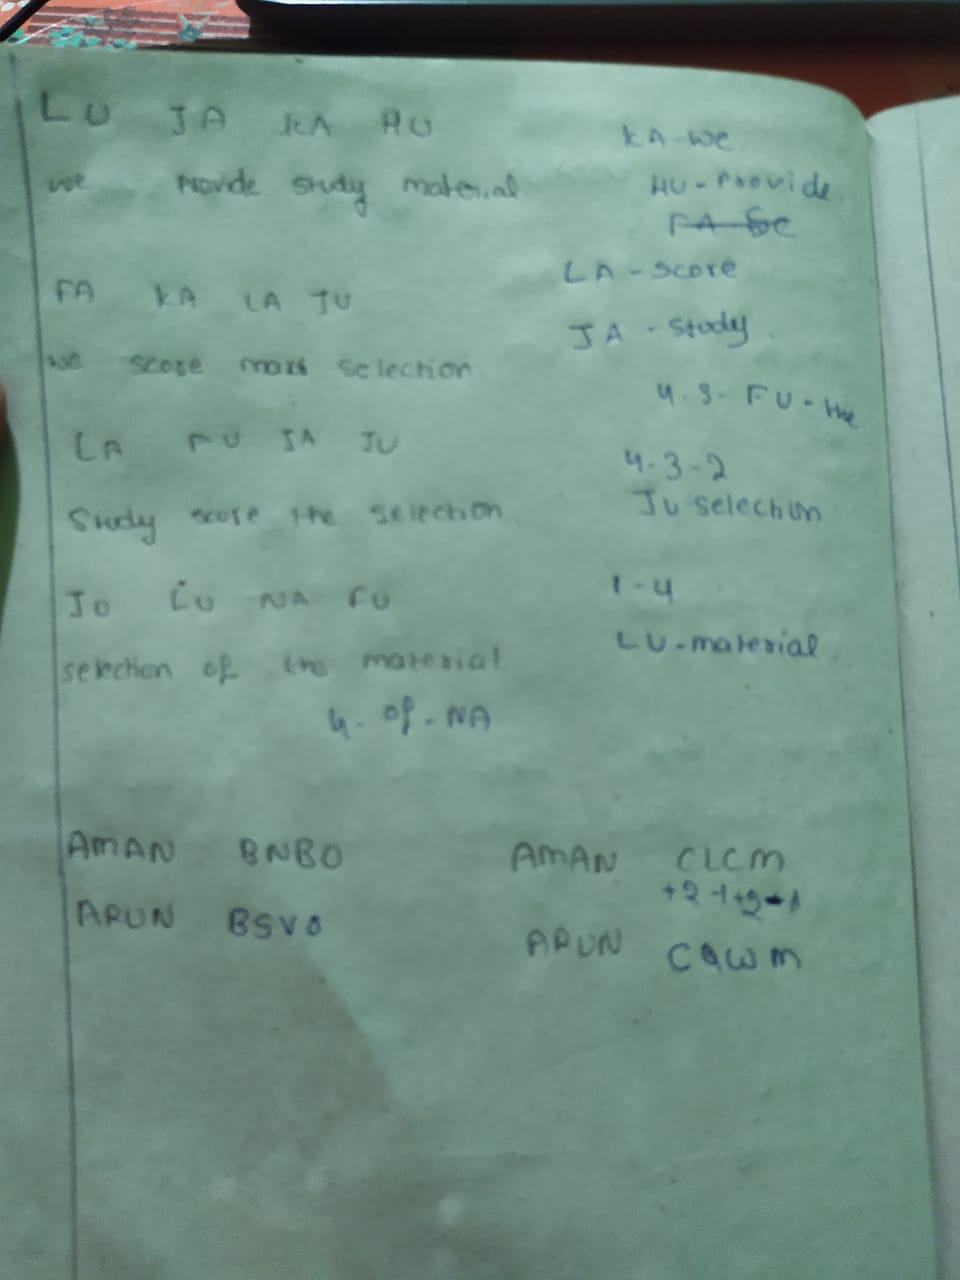 LU JA KA HU
we provide study material
FA KA LA JU
we score most selection
LA FU JA JU
Study score the selection
JU LU NA FU
selection of the material
4. of - NA
KA - we
HU - Provide
LA - score
JA - study
4.3 - FU - the
4.3-2
JU selection
1-4
LU - material
AMAN BNBO
ARUN BSVO
AMAN CLCM
+2-1+2-1
ARUN CQWM